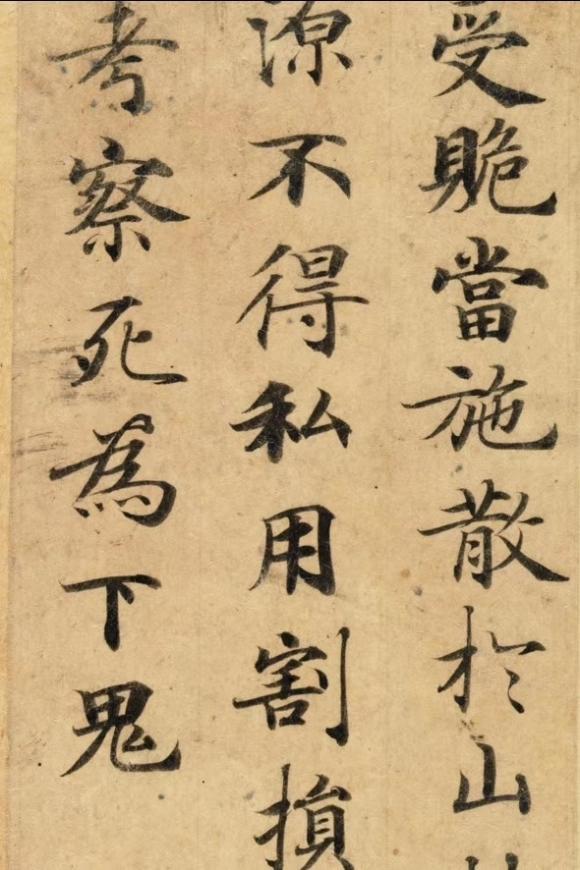 受贍當施散於山
源不得私用割損
考察死為下鬼